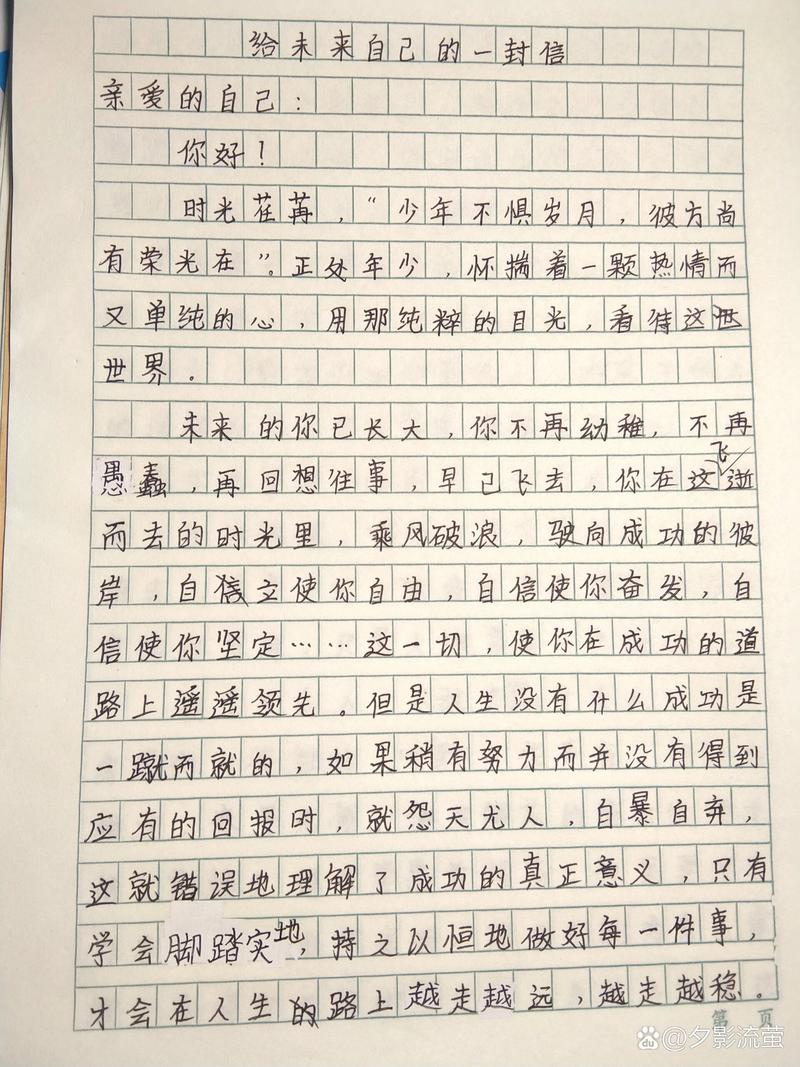 给未来自己的一封信
亲爱的自己：
你好！
时光荏苒，“少年不惧岁月，彼方尚
有荣光在”。正处年少，怀揣着一颗热情而
又单纯的心，用那纯粹的目光，看待这
世界。
未来的你已长大，你不再幼稚，不再
愚蠢，再回想往事，早已飞去，你在这飞逝
而去的时光里，乘风破浪，驶向成功的彼
岸，自信立使你自由，自信使你奋发，自
信使你坚定……这一切，使你在成功的道
路上遥遥领先。但是人生没有什么成功是
一蹴而就的，如果稍有努力而并没有得到
应有的回报时，就怨天尤人，自暴自弃，
这就错误地理解了成功的真正意义，只有
学会脚踏实地，持之以恒地做好每一件事，
才会在人生的路上越走越远，越走越稳。
第 页
Baidu @夕影流萤